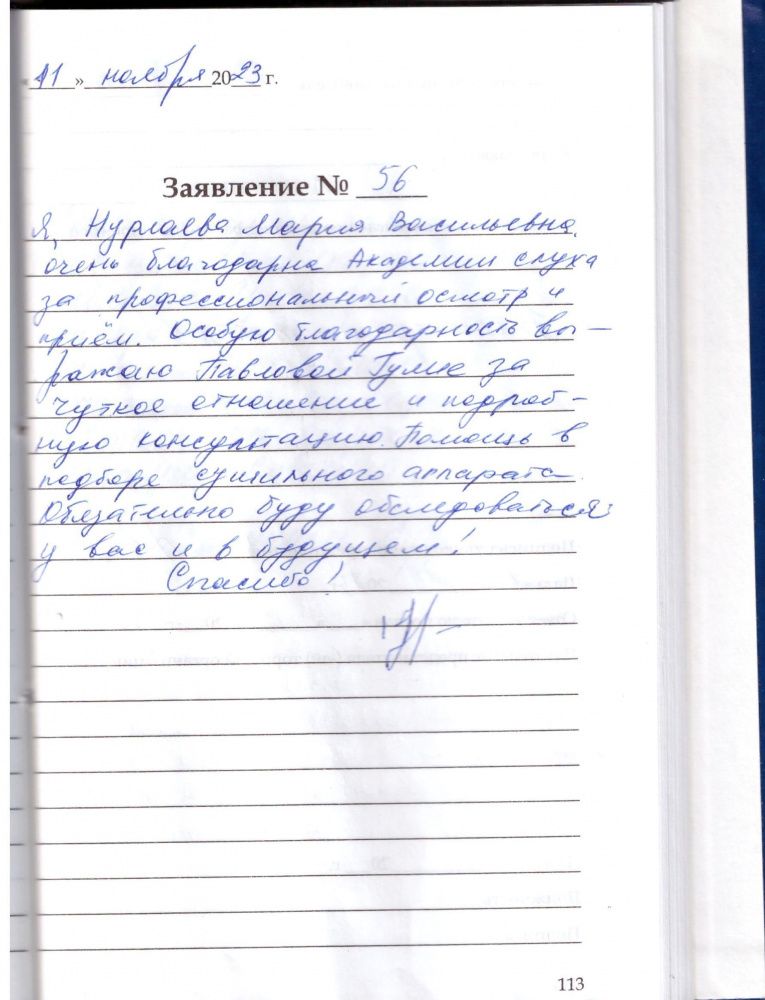 11 » ноября 2023 г.
Заявление № 56
Я, Нургаева Мария Васильевна
очень благодарна Академии слуха
за профессиональный осмотр и
приём. Особую благодарность вы-
ражаю Павловой Гулие за
чуткое отношение и подроб-
ную консультацию. Помощь в
подборе аппарата
Обязательно буду обследоваться
у вас и в будущем!
Спасибо!
113